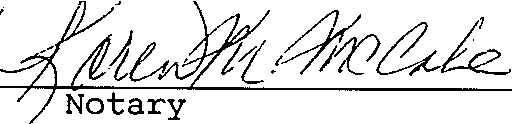 Karen M. McCabe
Notary